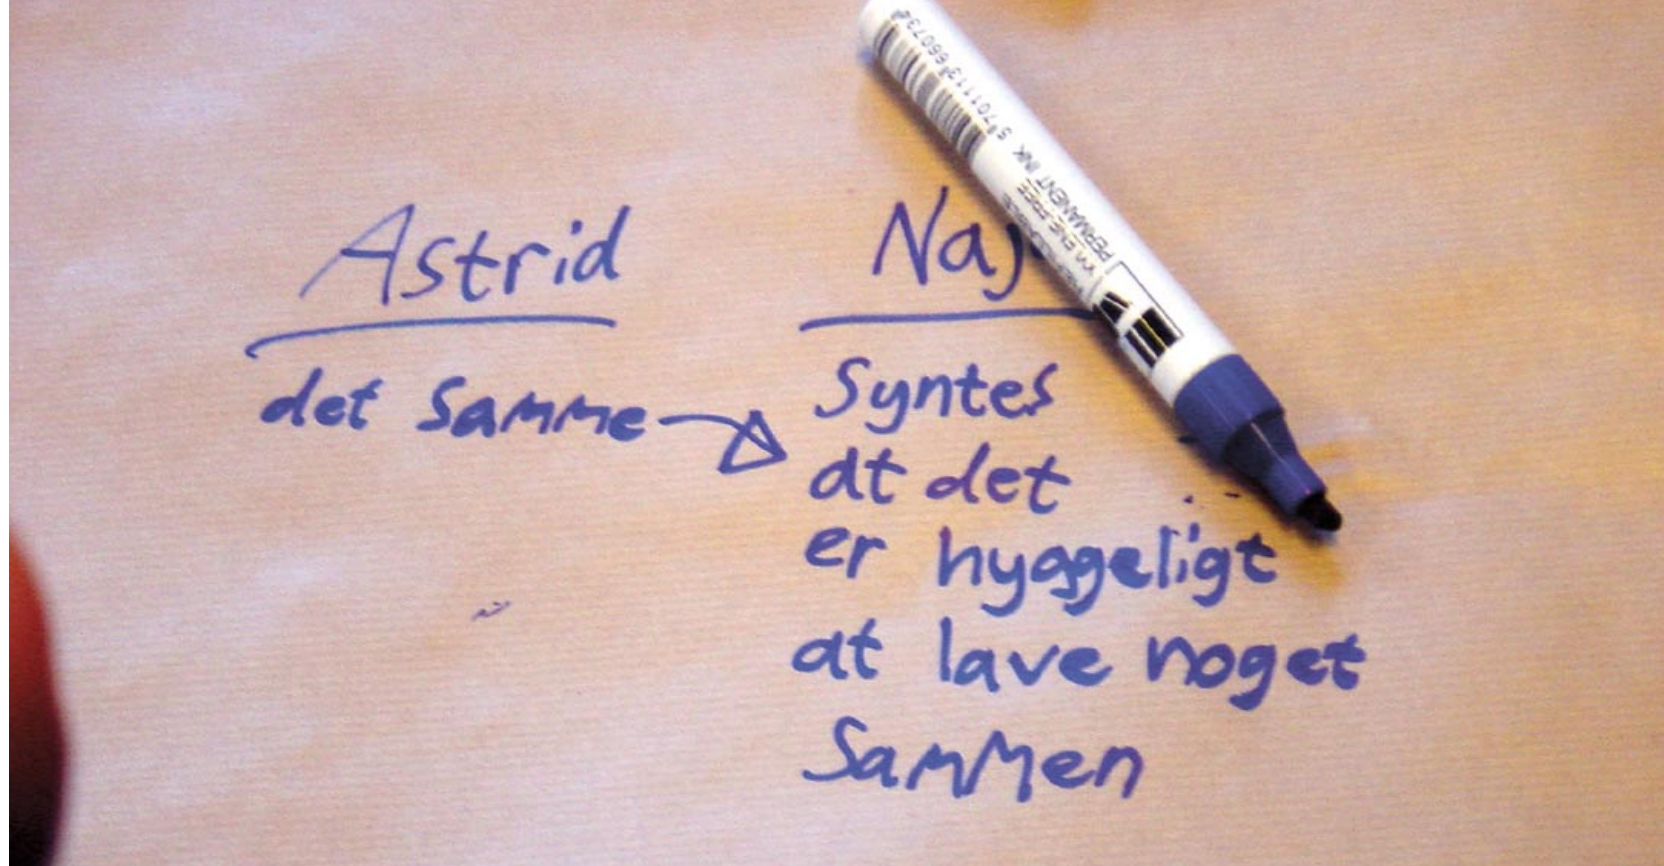 Astrid
det samme
Syntes
at det
er hyggeligt
at lave noget
Sammen
PERMANENT INK